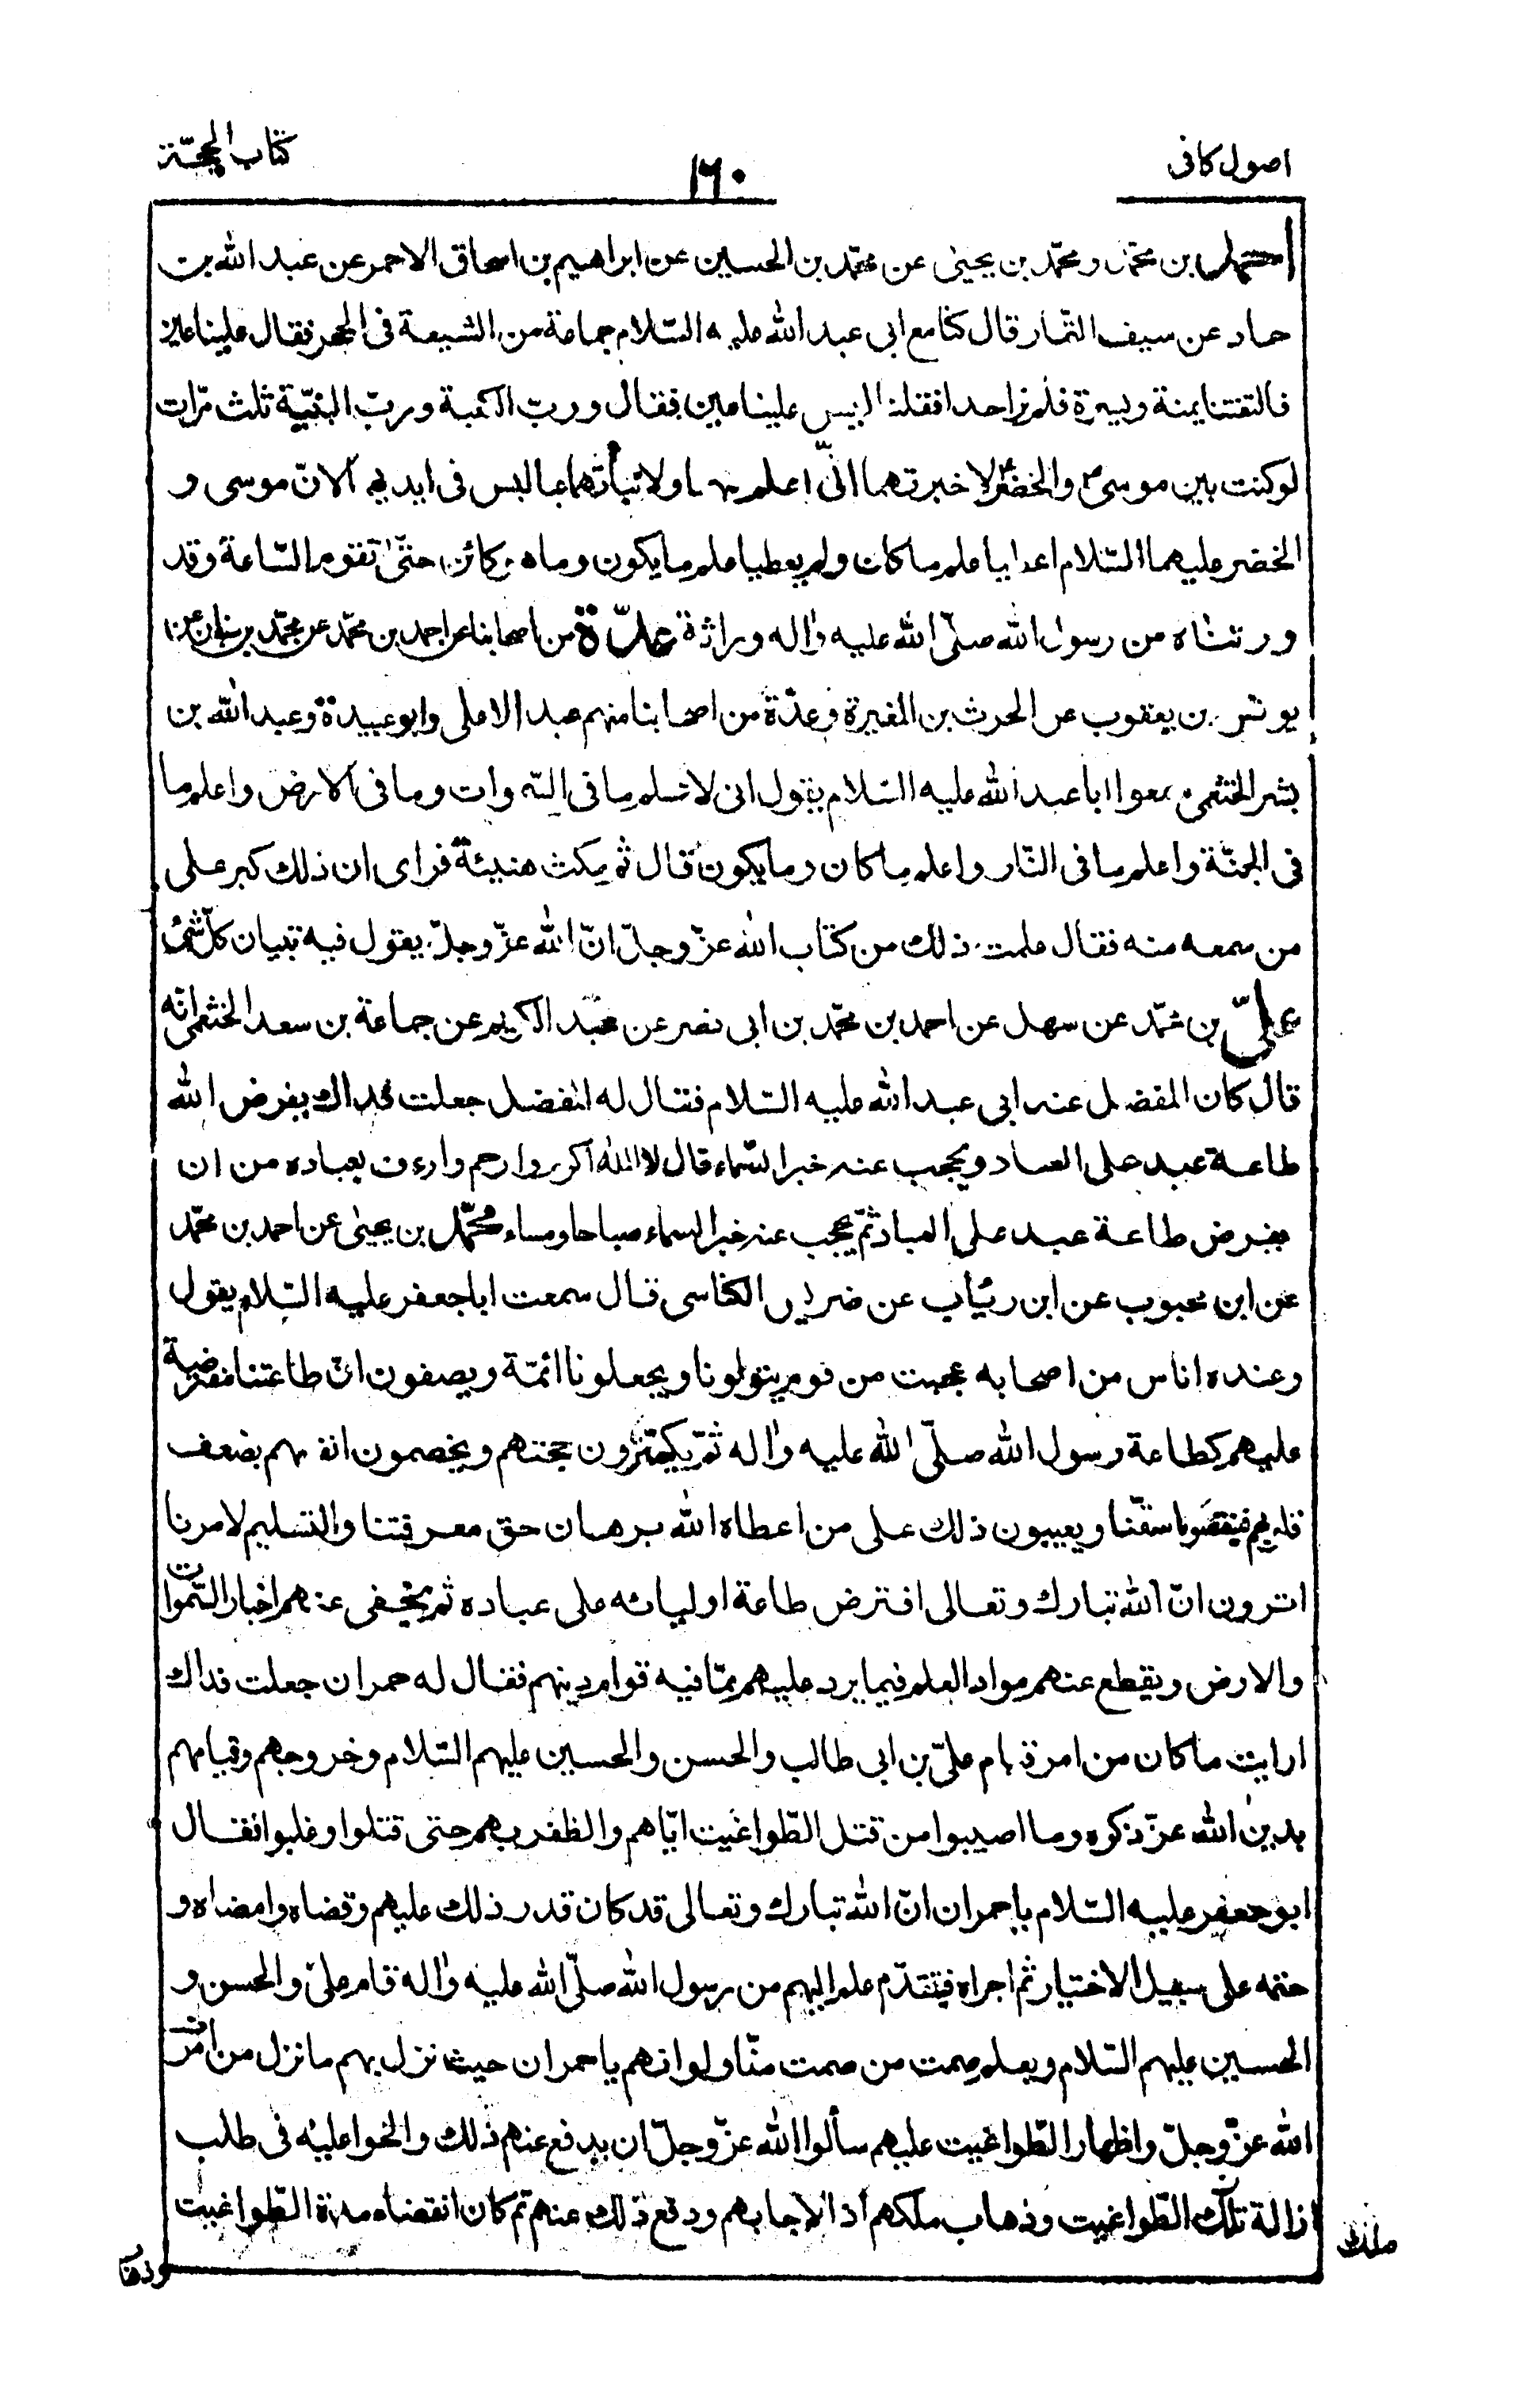 اصول کافی
١٦٠
کتاب الحجّة
احمد بن محمّد و محمّد بن یحیی عن محمّد بن الحسین عن ابراهیم بن اسحاق الاحمر عن عبد الله بن
حماد عن سیف التمّار قال کنّا مع ابی عبد الله علیه السّلام جماعة من الشیعة فی الحجر فقال علینا عین
فالتفتنا یمنة ویسرة فلم نر احدا فقلنا لیس علینا عین فقال و ربّ الکعبة و ربّ البنیّة ثلث مرّات
لو کنت بین موسی والخضر لاخبرتهما انّی اعلم منهما ولانبأتهما بما لیس فی ایدیهما لانّ موسی و
الخضر علیهما السّلام اعطیا علم ما کان ولم یعطیا علم ما یکون وما هو کائن حتّی تقوم السّاعة وقد
ورثناه من رسول الله صلّی الله علیه واله وراثة عدّة من اصحابنا عن احمد بن محمّد عن محمّد بن سنان عن
یونس بن یعقوب عن الحرث بن المغیرة وعدّة من اصحابنا منهم عبد الاعلی وابو عبیدة وعبد الله بن
بشر الخثعمی سمعوا ابا عبد الله علیه السّلام یقول انی لاعلم ما فی السّموات وما فی الارض واعلم ما
فی الجنّة واعلم ما فی النّار واعلم ما کان وما یکون قال ثم مکث هنیئة فرای ان ذلك کبر علی
من سمعه منه فقال علمت ذلك من کتاب الله عزّ وجلّ انّ الله عزّ وجلّ یقول فیه تبیان کلّ شئ
علیّ بن محمّد عن سهل عن احمد بن محمّد بن ابی نصر عن عبد الکریم عن جماعة بن سعد الخثعمی انّه
قال کان المفضل عند ابی عبد الله علیه السّلام فقال له المفضل جعلت فداك یفرض الله
طاعة عبد علی العباد ویحجب عنه خبر السّماء قال لا الله اکرم وارحم وارءف بعباده من ان
یفرض طاعة عبد علی العباد ثمّ یحجب عنه خبر السماء صباحا ومساء محمّد بن یحیی عن احمد بن محمّد
عن ابن محبوب عن ابن رئاب عن ضریس الکناسی قال سمعت ابا جعفر علیه السّلام یقول
وعنده اناس من اصحابه عجبت من قوم یتولونا ویجعلونا ائمّة ویصفون انّ طاعتنا مفترضة
علیهم کطاعة رسول الله صلّی الله علیه واله ثمّ یکسرون حجتهم ویخصمون انفسهم بضعف
قلوبهم فینقصونا حقّنا ویعیبون ذلك علی من اعطاه الله برهان حق معرفتنا والتسلیم لامرنا
اترون انّ الله تبارك وتعالی افترض طاعة اولیائه علی عباده ثم یخفی عنهم اخبار السّموات
والارض ویقطع عنهم مواد العلم فیما یرد علیهم ممّا فیه قوام دینهم فقال له حمران جعلت فداك
ارایت ما کان من امر قیام علیّ بن ابی طالب والحسن والحسین علیهم السّلام وخروجهم وقیامهم
بدین الله عزّ ذکره وما اصیبوا من قتل الطّواغیت ایّاهم والظفر بهم حتی قتلوا وغلبوا فقال
ابو جعفر علیه السّلام یا حمران انّ الله تبارك وتعالی قد کان قدر ذلك علیهم وقضاه وامضاه و
حتمه علی سبیل الاختیار ثم اجراه فبتقدّم علم الیهم من رسول الله صلّی الله علیه واله قام علیّ والحسن و
الحسین علیهم السّلام وبعلم صمت من صمت منّا ولو انهم یا حمران حیث نزل بهم ما نزل من امر
الله عزّ وجلّ واظهار الطّواغیت علیهم سألوا الله عزّ وجلّ ان یدفع عنهم ذلك والحوا علیه فی طلب
ازالة تلك الطّواغیت وذهاب ملکهم اذا لاجابهم ودفع ذلك عنهم ثم کان انقضاء مدة الطّواغیت
ملك
وذهاب